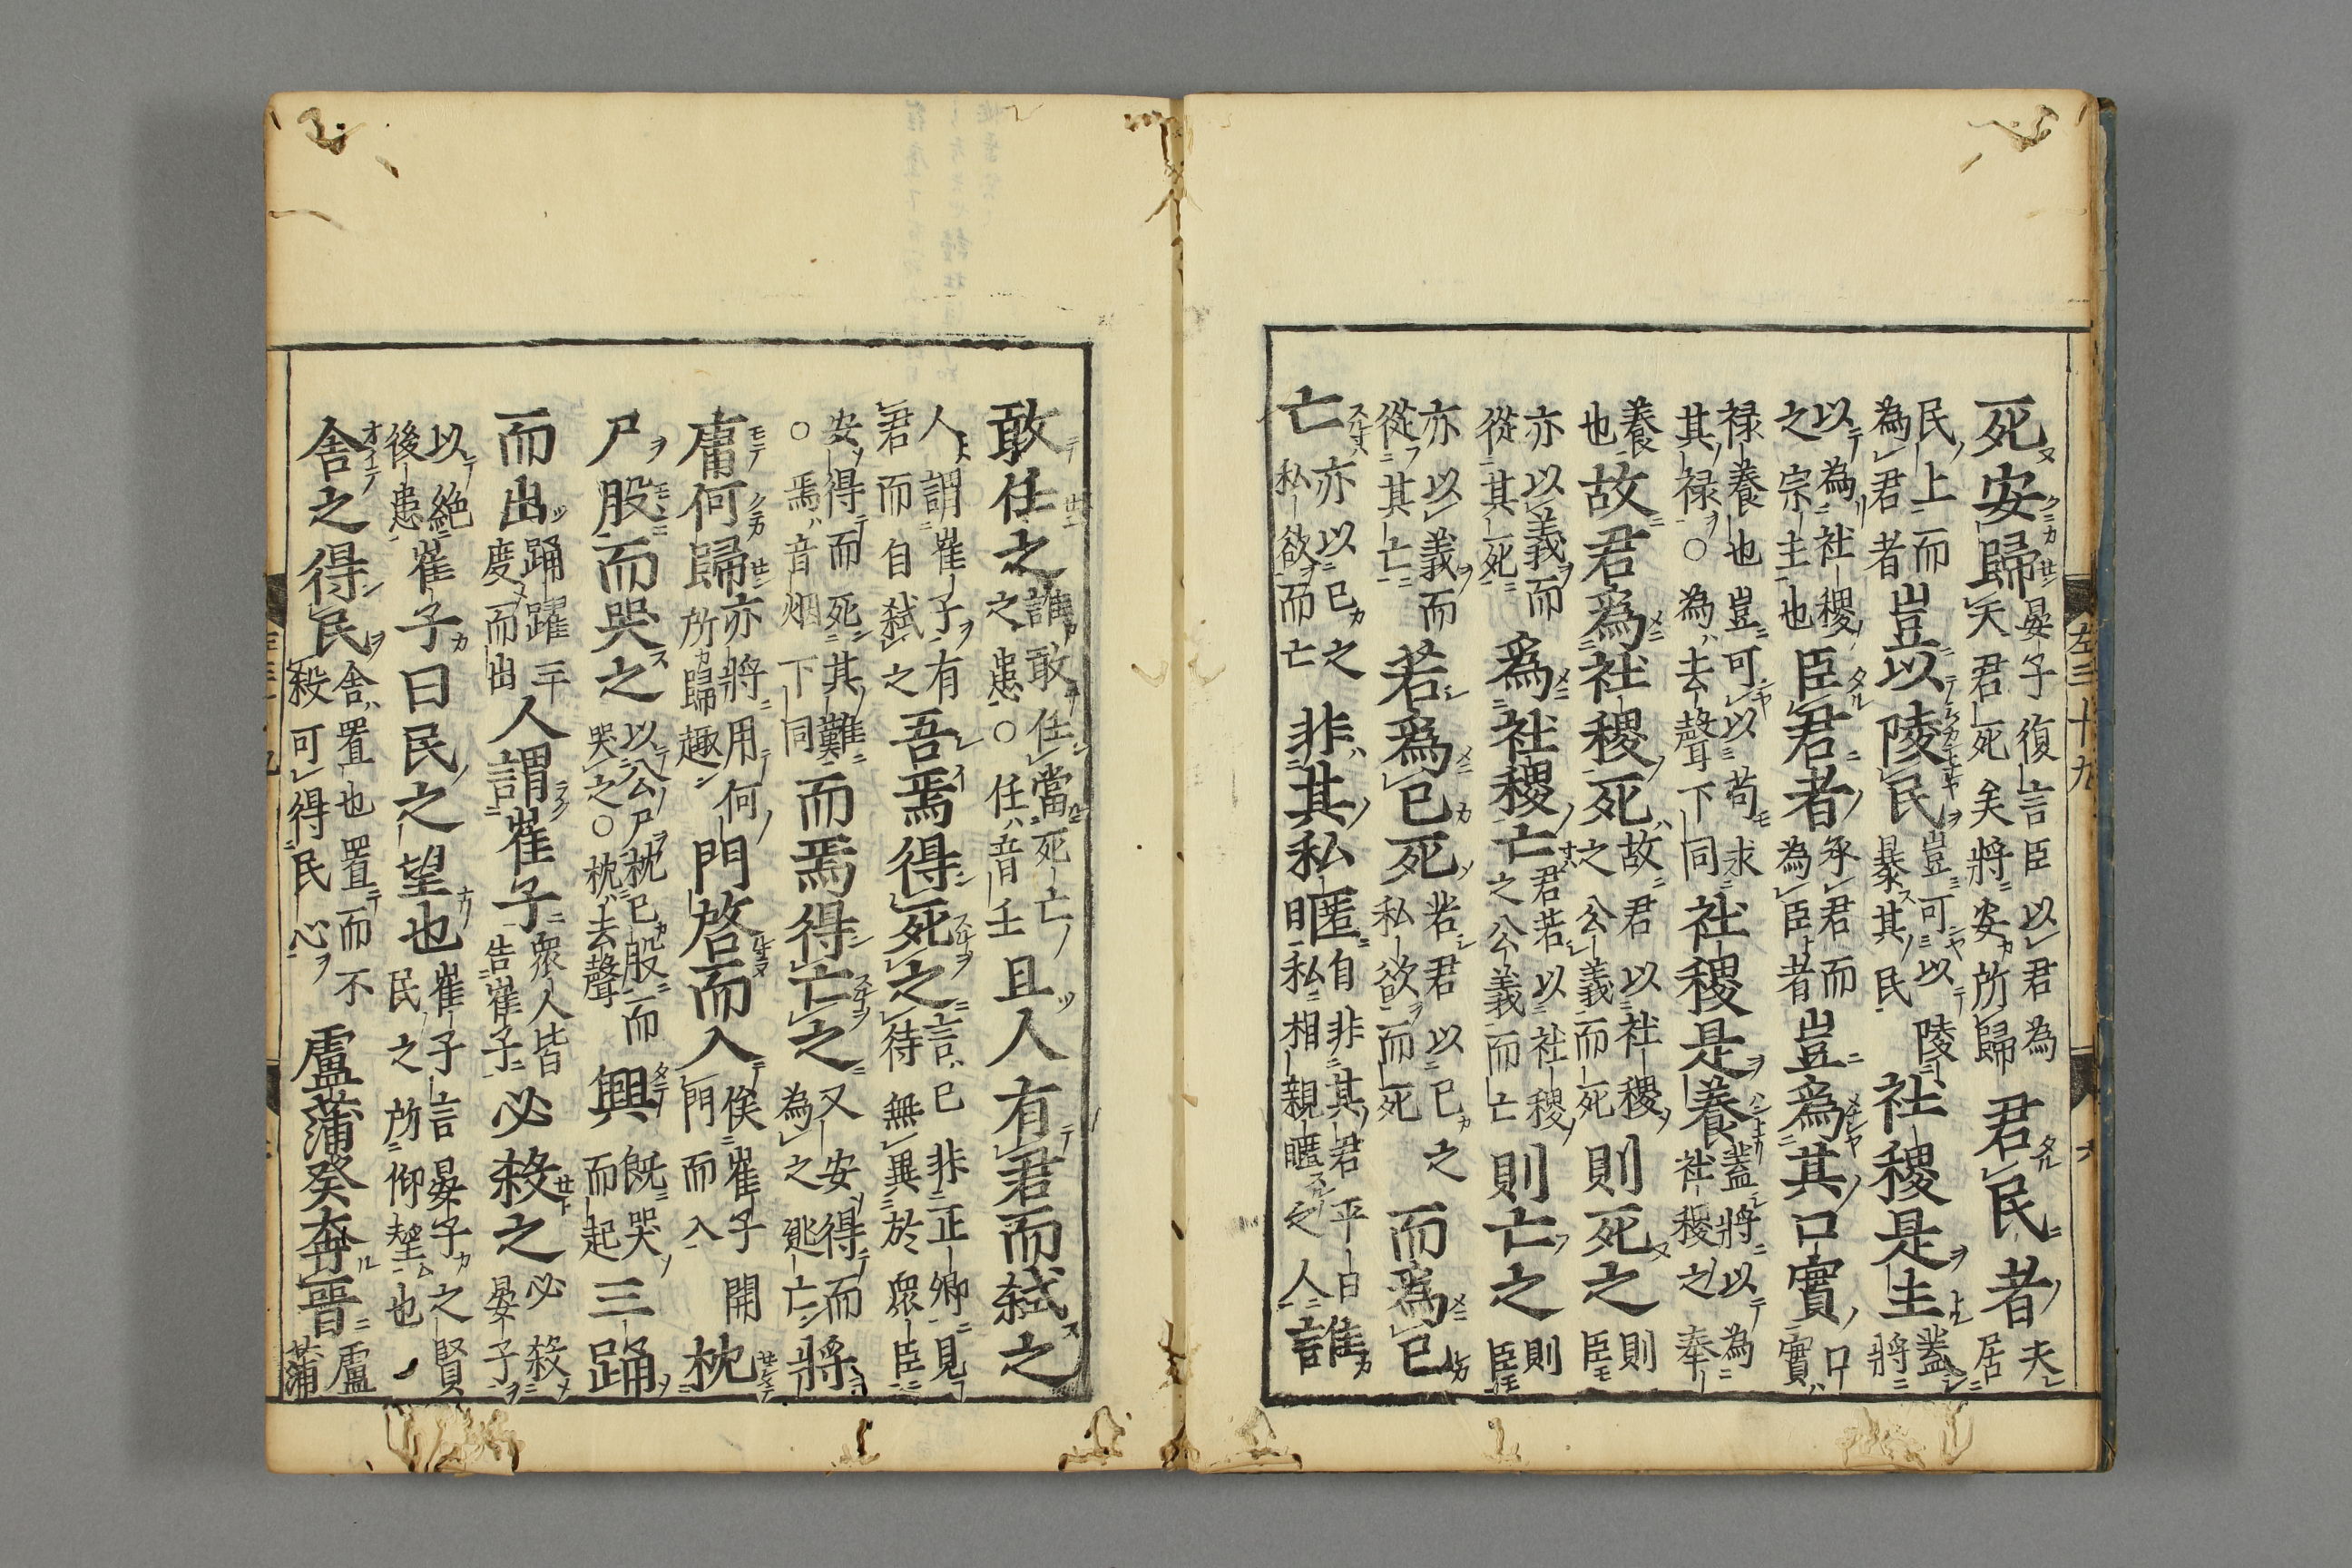 死安歸晏子復言臣以君為天君死矣將安所歸君民者夫居
民上而為君者豈以陵民豈可以陵暴其民社稷是主蓋將
以為社稷之宗主也臣君者為臣者承君而豈為其口實口實
禄養也豈可以苟求其禄○為去聲下同社稷是養蓋將以為社稷之奉
養也故君為社稷死故君以社稷之公義而死則死之則臣
亦以義而從其死為社稷亡君若以社稷之公義而亡則亡之則臣
亦以義而從其亡若為已死若君以已之私欲而死而為已
亡亦以已之私欲而亡非其私暱自非其君平日私相親暱之人誰
敢任之誰敢任當死亡之患○任音壬且人有君而弑之
人謂崔子有君而自弑之吾焉得死之言已非正卿見待無異於衆臣
安得而死其難○焉音烟下同而焉得亡之又安得而為之逃亡將
庸何歸亦將用何所歸趣門啓而入俟崔子開門而入枕
尸股而哭之以公尸枕已股而哭之○枕去聲興既哭而起三踊
而出踊躍三度而出人謂崔子衆人皆告崔子必殺之必殺晏子
以絶後患崔子曰民之望也崔子言晏子之賢民之所仰望也
舍之得民舍置也置而不殺可得民心盧蒲癸奔晉盧蒲
左三十九